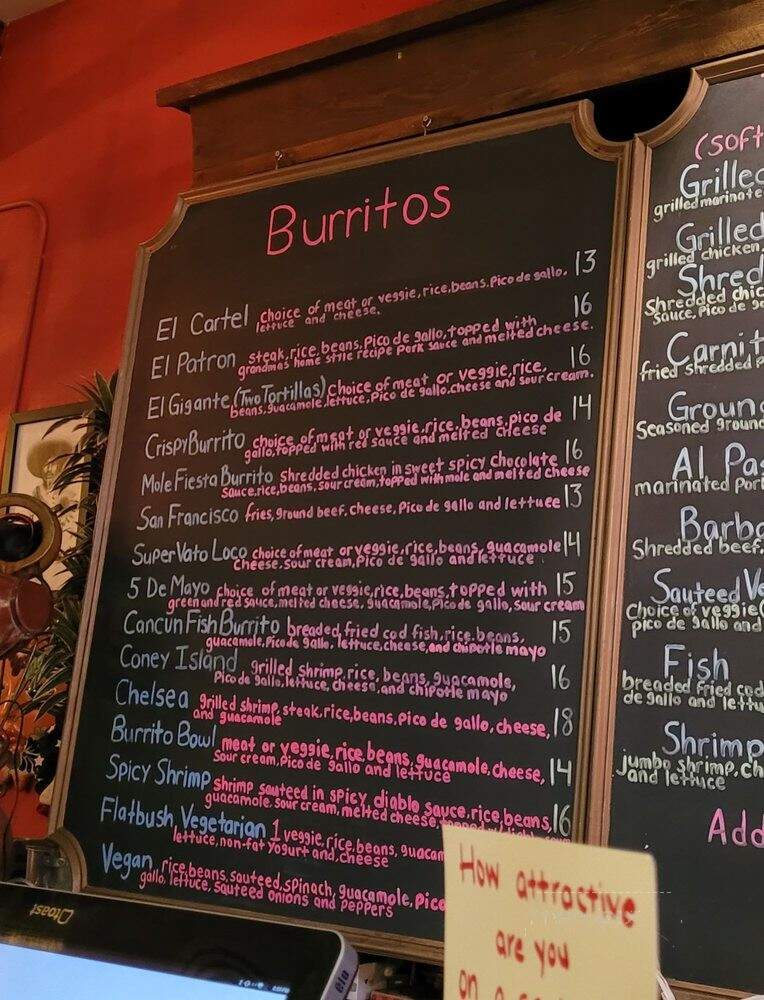 Burritos
El Cartel choice of meat or veggie, rice, beans, Pico de gallo, 13
lettuce and cheese.
El Patron steak, rice, beans, Pico de gallo, topped with 16
grandmas home style recipe Pork sauce and melted cheese.
El Gigante (Two Tortillas) Choice of meat or veggie, rice, 16
beans, guacamole, lettuce, Pico de gallo, cheese and sour cream.
Crispy Burrito choice of meat or veggie, rice, beans, pico de 14
gallo, topped with red sauce and melted cheese
Mole Fiesta Burrito Shredded chicken in sweet spicy chocolate 16
sauce, rice, beans, sour cream, topped with mole and melted cheese
San Francisco fries, ground beef, cheese, Pico de gallo and lettuce 13
Super Vato Loco choice of meat or veggie, rice, beans, guacamole 14
cheese, sour cream, Pico de gallo and lettuce
5 De Mayo choice of meat or veggie, rice, beans, topped with 15
green and red sauce, melted cheese, guacamole, Pico de gallo, sour cream
Cancun Fish Burrito breaded, fried cod fish, rice, beans, 15
guacamole, Pico de gallo, lettuce, cheese, and chipotle mayo
Coney Island grilled shrimp, rice, beans, guacamole, 16
Pico de gallo, lettuce, cheese, and chipotle mayo
Chelsea grilled shrimp, steak, rice, beans, pico de gallo, cheese, 18
and guacamole
Burrito Bowl meat or veggie, rice, beans, guacamole, cheese, 14
Sour cream, Pico de gallo and lettuce
Spicy Shrimp shrimp sauteed in spicy, diablo sauce, rice, beans, 16
guacamole, sour cream, melted cheese,
Flatbush Vegetarian 1 veggie, rice, beans, guacam
lettuce, non-fat Yogurt and, cheese
Vegan rice, beans, sauteed, spinach, guacamole, Pico
gallo, lettuce, sauteed onions and peppers
(Soft
Grilled
grilled marinate
Grilled
grilled chicken,
Shred
Shredded chic
Sauce, Pico de ga
Carnit
fried shredded P
Groun
Seasoned ground
Al Pas
marinated Pork
Barba
Shredded beef,
Sauteed Ve
Choice of veggie(
pico de gallo and
Fish
breaded fried cod
de gallo and lettu
Shrimp
jumbo shrimp, ch
and lettuce
Add
How attractive
are you
on a
toast
elo